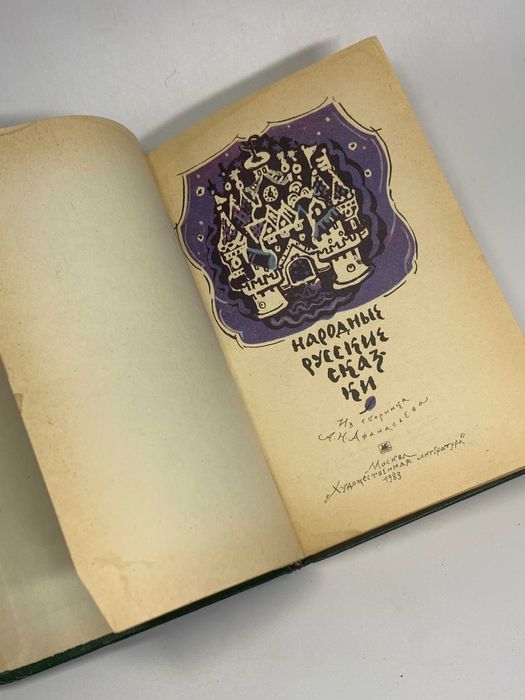 НАРОДНЫЕ
РУССКИЕ
СКАЗ-
КИ
Из сборника
А. Н. Афанасьева
Москва
„Художественная литература"
1983